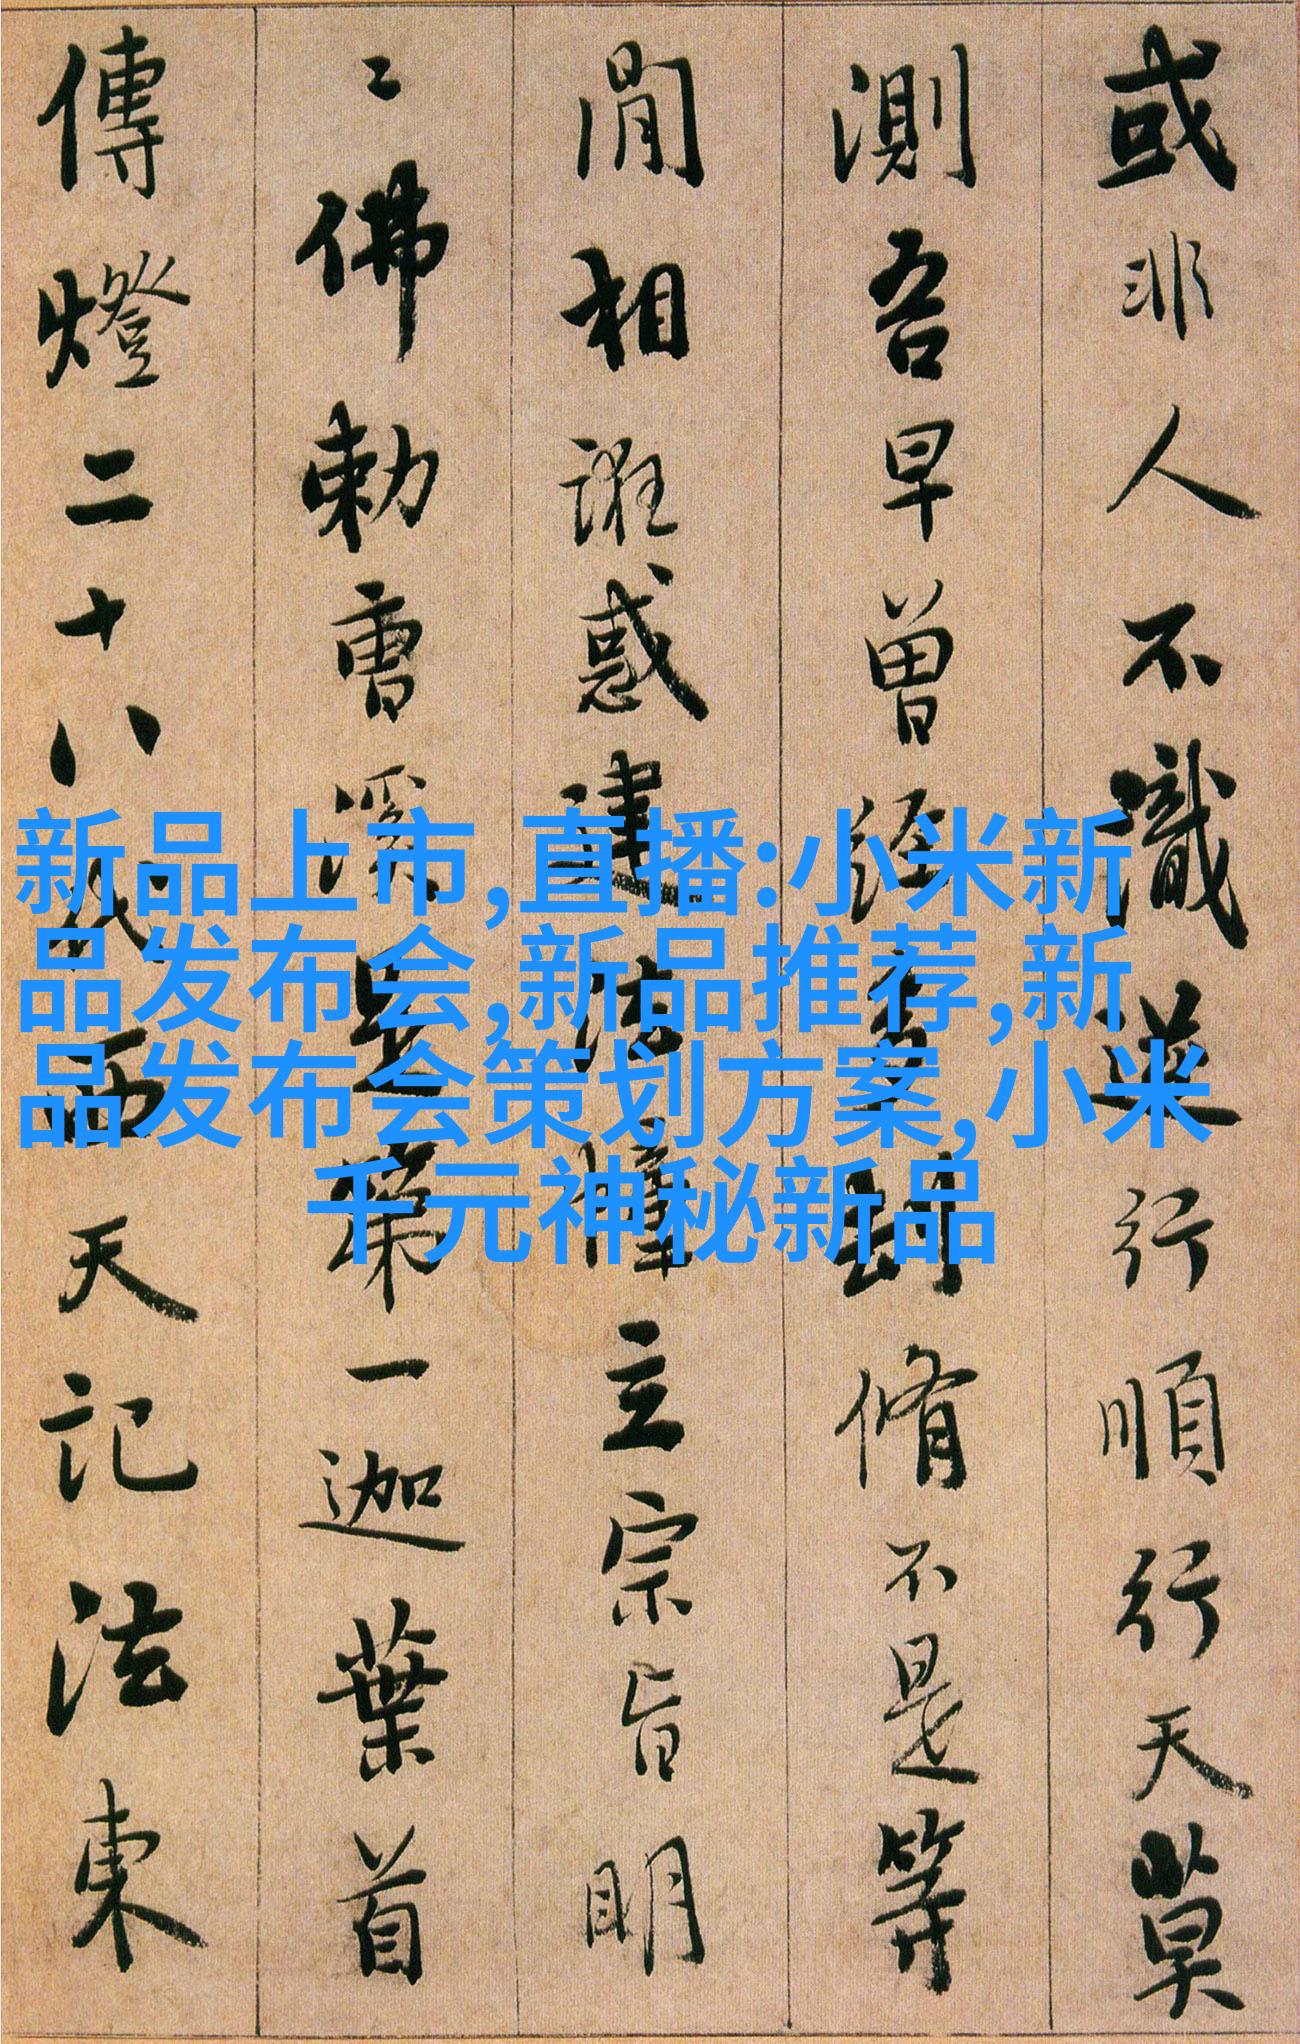 或非人不識逆行順行天莫
測吾早曾經多刧脩不是等
閒相誑惑建法幢立宗旨明
〻佛勅曹溪是第一迦葉首
傳燈二十八代西天記法東
新品上市,直播:小米新
品发布会,新品推荐,新
品发布会策划方案,小米
千元神秘新品